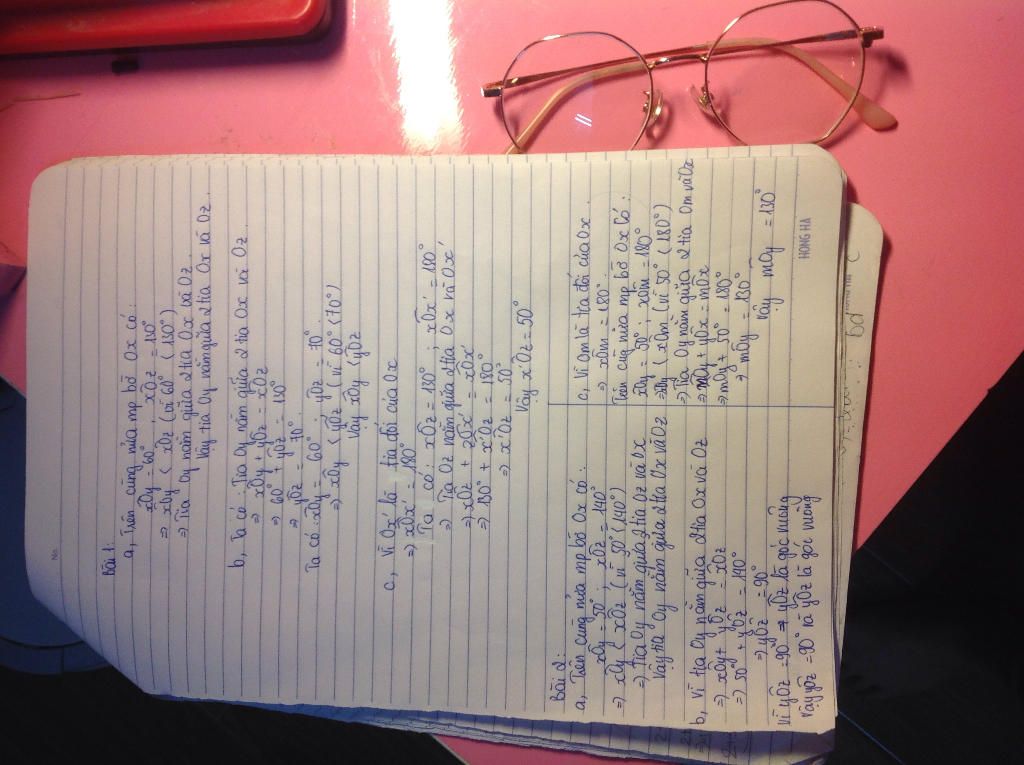 No.
Bài 1:
a, Trên cùng nửa mp bờ Ox có:
xÔy = 60° ; xÔz = 130°
⇒ xÔy < xÔz (vì 60° < 130°)
⇒ Tia Oy nằm giữa 2 tia Ox và Oz.
Vậy tia Oy nằm giữa 2 tia Ox và Oz.
b, Ta có: Tia Oy nằm giữa 2 tia Ox và Oz.
⇒ xÔy + yÔz = xÔz
⇒ 60° + yÔz = 130°
⇒ yÔz = 70°
Ta có: xÔy = 60° ; yÔz = 70°
⇒ xÔy < yÔz (vì 60° < 70°)
Vậy xÔy < yÔz
c, Vì Ox' là tia đối của Ox
⇒ xÔx' = 180°
Ta có: xÔz = 130° ; xÔx' = 180°
⇒ Tia Oz nằm giữa 2 tia Ox và Ox'
⇒ xÔz + zÔx' = xÔx'
⇒ 130° + x'Ôz = 180°
⇒ x'Ôz = 50°
Vậy x'Ôz = 50°
Bài 2:
a, Trên cùng nửa mp bờ Ox có:
xÔy = 50° ; xÔz = 140°
⇒ xÔy < xÔz (vì 50° < 140°)
⇒ Tia Oy nằm giữa 2 tia Oz và Ox
Vậy tia Oy nằm giữa 2 tia Ox và Oz
b, Vì tia Oy nằm giữa 2 tia Ox và Oz
⇒ xÔy + yÔz = xÔz
⇒ 50° + yÔz = 140°
⇒ yÔz = 90°
Vì yÔz = 90° ⇒ yÔz là góc vuông
Vậy yÔz = 90° và yÔz là góc vuông
c, Vì Om là tia đối của Ox.
⇒ xÔm = 180°.
Trên cùng nửa mp bờ Ox có:
xÔy = 50° ; xÔm = 180°
⇒ xÔy < xÔm (vì 50° < 180°)
⇒ Tia Oy nằm giữa 2 tia Om và Ox
⇒ mÔy + yÔx = mÔx
⇒ mÔy + 50° = 180°
⇒ mÔy = 130°
Vậy mÔy = 130°
HONG HA